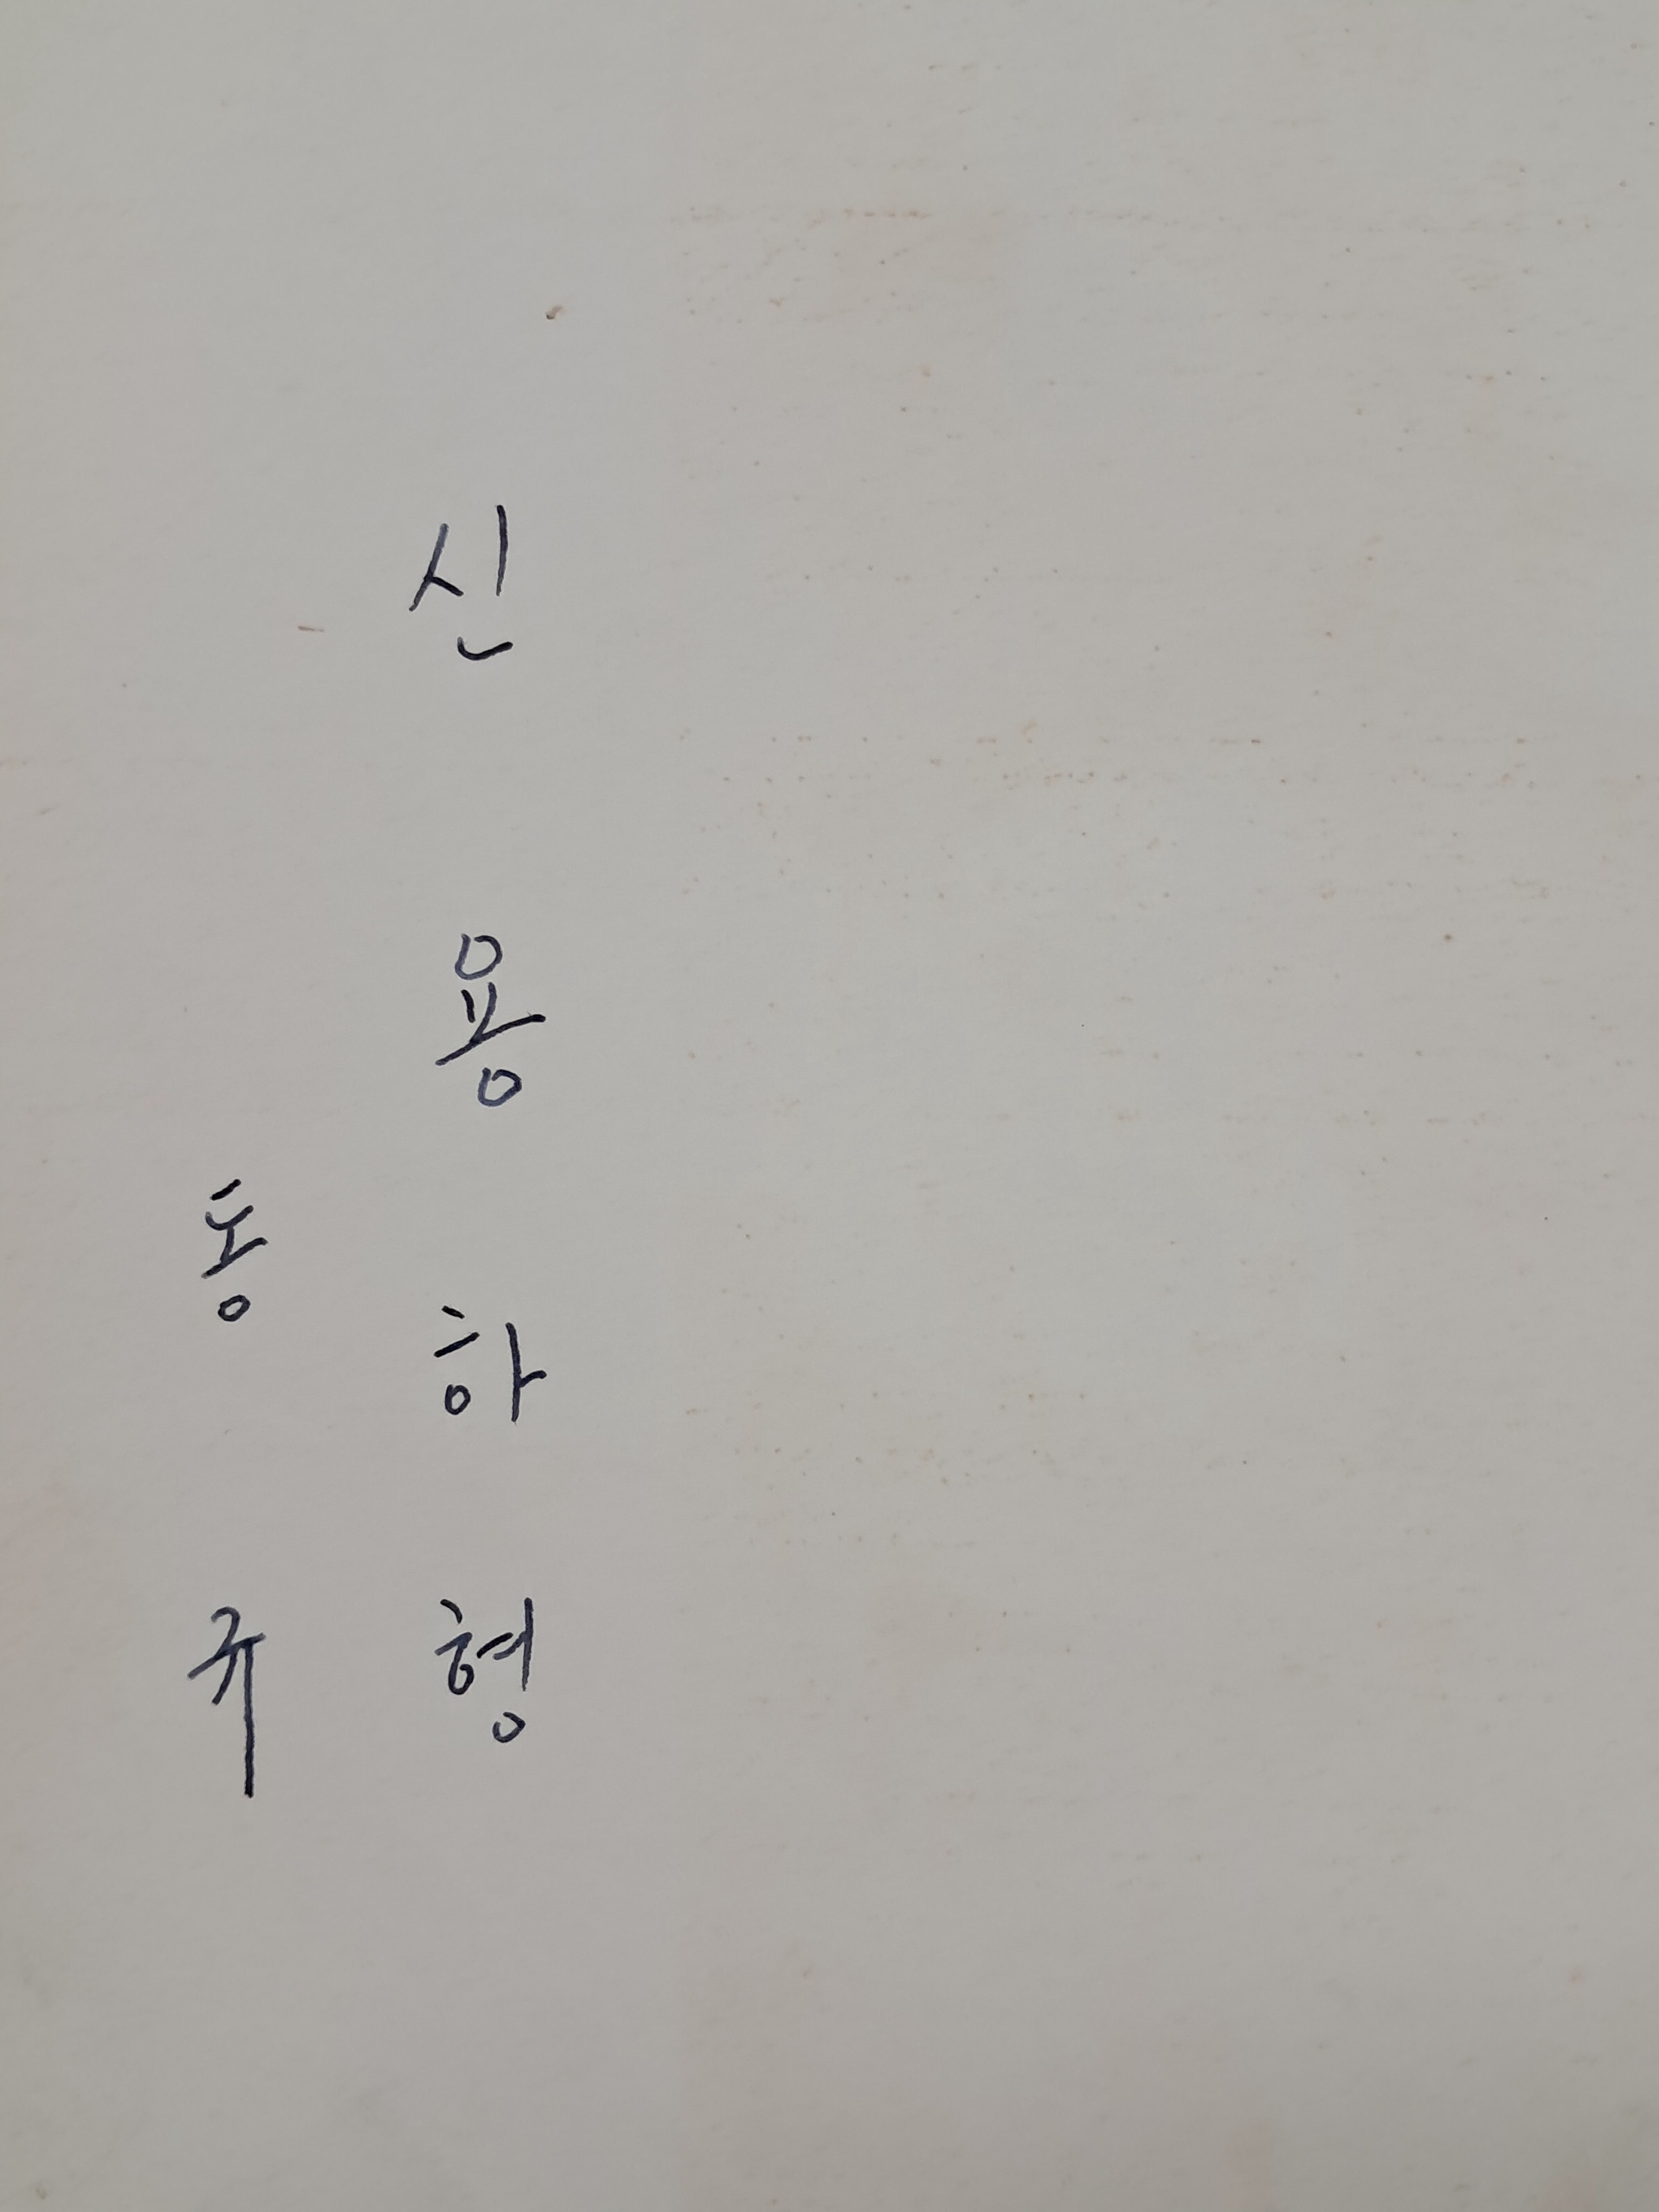 신용하형
동규